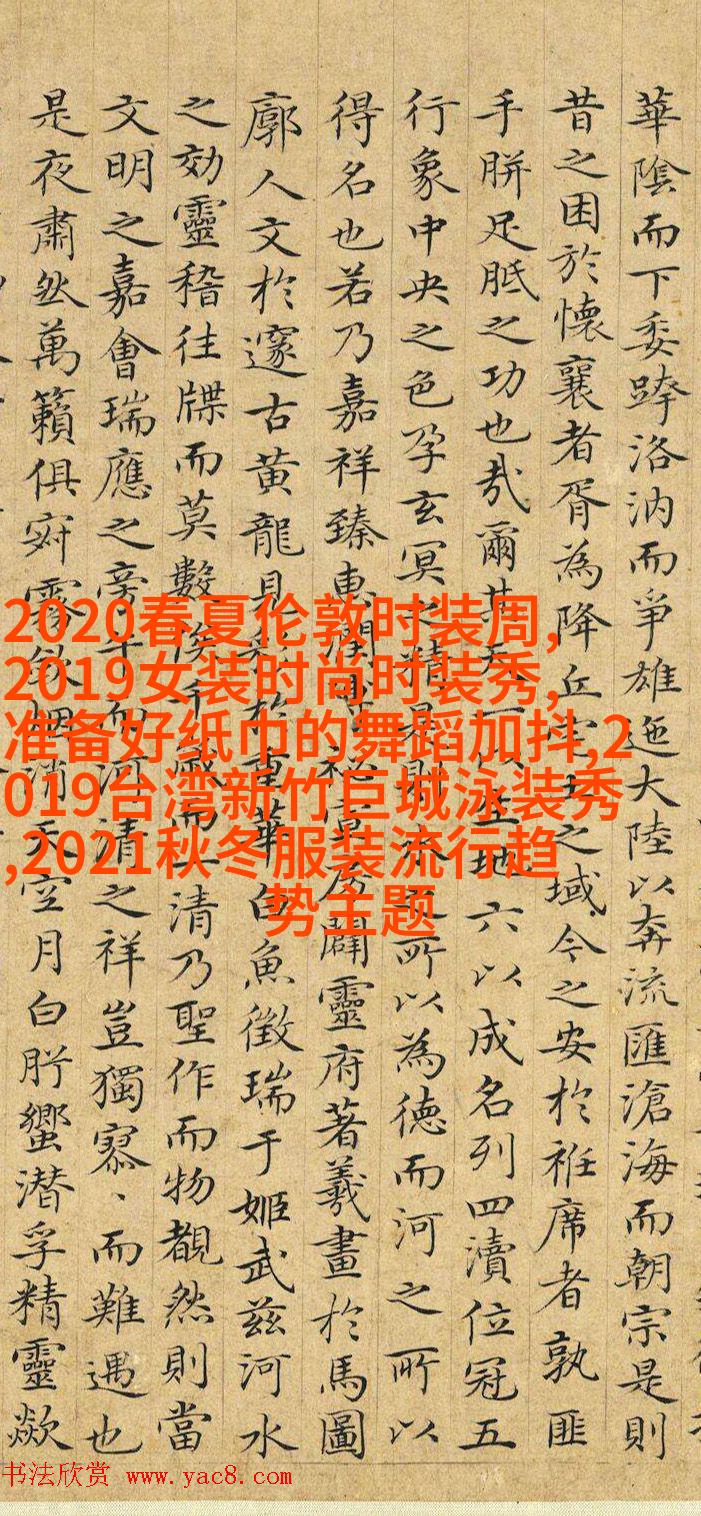 華陰而下委跨洛汭而爭雄迤大陸以奔流匯滄海而朝宗是則
昔之困於懷襄者胥為降丘宅土之域今之安於袵席者孰匪
手胼足胝之功也哉爾其天一以生地六以成名列四瀆位冠五
行象中央之色孕玄冥之精是則所以為德而河之所以
得名也若乃嘉祥臻惠闢靈府著羲畫於馬圖
廓人文於邃古黃龍見於重華白魚徵瑞于姬武茲河水
之効靈稽往牒而莫數俟千歲而一清乃聖作而物覩然則當
文明之嘉會瑞應之旁午河清之祥豈獨寥、而難遇也
是夜肅然萬籟俱寂霧斂烟消天空月白肸蠁潛孚精靈歘
2020春夏伦敦时装周,
2019女装时尚时装秀,
准备好纸巾的舞蹈加抖,2
019台湾新竹巨城泳装秀
,2021秋冬服装流行趋
势主题
书法欣赏 www.yac8.com